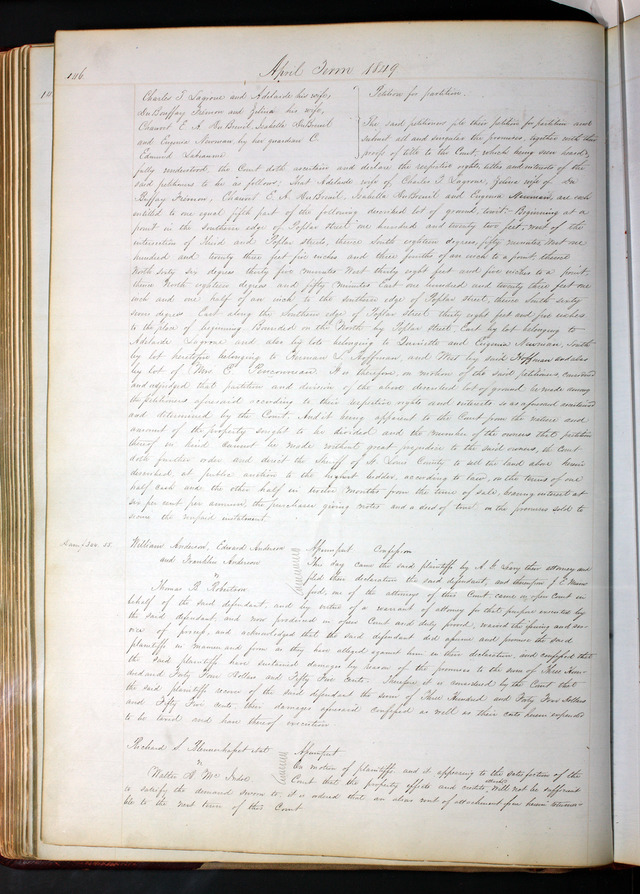 146
April Term 1849
Charles T. Lagrone and Adelaide his wife,
DuBouffay Fremon and Zelina his wife,
Chauvet E. A. DuBreuil, Isabella DuBreuil
and Eugenia Newman by her guardian C.
Edmund Labeaume
Petition for partition.
The said petitioners file their petition for partition and
submit all and singular the premises, together with their
proofs of title to the Court, which being seen heard &
fully understood, the Court doth ascertain and declare the respective rights, titles and interests of the
said petitioners to be as follows; That Adelaide wife of Charles T. Lagrone, Zelina wife of Du
Buffay Fremon, Chauvet E. A. DuBreuil, Isabella DuBreuil and Eugenia Newman, are each
entitled to one equal fifth part of the following described lot of ground, to wit: Beginning at a
point in the southern edge of Poplar street one hundred and twenty two feet, west of the
intersection of Third and Poplar streets, thence South eighteen degrees, fifty minutes West one
hundred and twenty three feet five inches and three fourths of an inch to a point thence
North sixty six degrees thirty five minutes West thirty eight feet and five inches to a point
thence North eighteen degrees and fifty minutes East one hundred and twenty three feet one
inch and one half of an inch to the southern edge of Poplar Street, thence South sixty
seven degrees East along the Southern edge of Poplar street thirty eight feet and five inches
to the place of beginning. Bounded on the North by Poplar Street, East by lot belonging to
Adelaide Lagrone and also by lots belonging to Henriette and Eugenia Newman, South
by lot heretofore belonging to Herman L. Hoffman, and West by said Hoffman and also
by lot of Mrs. E. Pencouneau. It is therefore, on motion of the said petitioners, considered
and adjudged that partition and division of the above described lot of ground be made among
the petitioners aforesaid according to their respective rights and interests so as aforesaid ascertained
and determined by the Court. And it being apparent to the Court from the nature and
amount of the property sought to be divided and the number of the owners that partition
thereof in kind cannot be made without great prejudice to the said owners, the Court
doth further order and direct the Sheriff of St. Louis County to sell the land above herein
described at public auction to the highest bidder, according to law, on the terms of one
half cash and the other half in twelve months from the time of sale, bearing interest at
six per cent per annum, the purchaser giving notes and a deed of trust on the premises sold to
secure the unpaid instalment.
William Anderson, Edward Anderson
and Franklin Anderson
vs
Thomas B. Robertson
Assumpsit Confession
This day came the said plaintiffs by A. L. Levy their attorney and
filed their declaration the said defendant, and thereupon J. E. Mun-
ford, one of the attorneys of this Court came in open Court in
behalf of the said defendant, and by virtue of a warrant of attorney for that purpose executed by
the said defendant and now produced in open Court and duly proved, waived the issuing and ser-
vice of process, and acknowledged that the said defendant did assume and promise the said
plaintiffs in manner and form as they have alleged against him in their declaration, and confessed that
the said plaintiffs have sustained damages by reason of the premises to the sum of Three Hun-
dred and Forty Four Dollars and Fifty Five Cents. Therefore it is considered by the Court that
the said plaintiffs recover of the said defendant the sum of Three Hundred and Forty Four dollars
and Fifty Five cents their damages aforesaid confessed as well as their costs herein expended
to be taxed and have thereof execution
Richard S.
vs
Walter A.
Assumpsit
On motion of plaintiffs and it appearing to the satisfaction of the
Court that the property effects and credits, will not be sufficient
to satisfy the demand sworn to, it is ordered that an alias writ of attachment issue herein return-
able to the next term of this Court